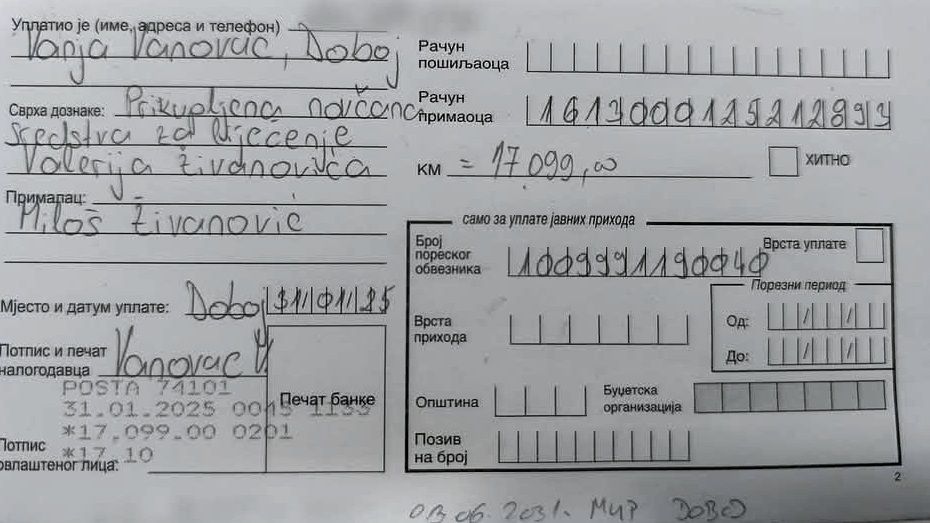 Уплатио је (име, адреса и телефон)
Vanja Vanovac, Doboj
Сврха дознаке: Prikupljena novčana
sredstva za liječenje
Valerija Živanovića
Прималац:
Miloš Živanović
Мјесто и датум уплате: Doboj 31/01/25
Потпис и печат
налогодавца Vanovac V
Печат банке
POSTA 74101
31.01.2025 0045 1133
*17.099.00 0201
*17.10
Потпис
овлаштеног лица:
Рачун
пошиљаоца
Рачун
примаоца
КМ = 17 099,00
ХИТНО
само за уплате јавних прихода
Број
пореског
обвезника
Врста уплате
Порезни период
Од: / /
До: / /
Врста
прихода
Општина
Буџетска
организација
Позив
на број
2
03.06.2031. МУР DOBOJ